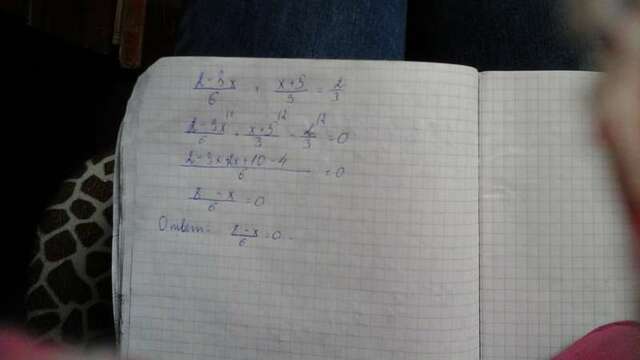 2-3x/6 + x+5/3 = 2/3
2-3x/6 + x+5/3 - 2/3 = 0
2-3x+2x+10-4/6 = 0
8-x/6 = 0
Ответ: 8-x/6 = 0.